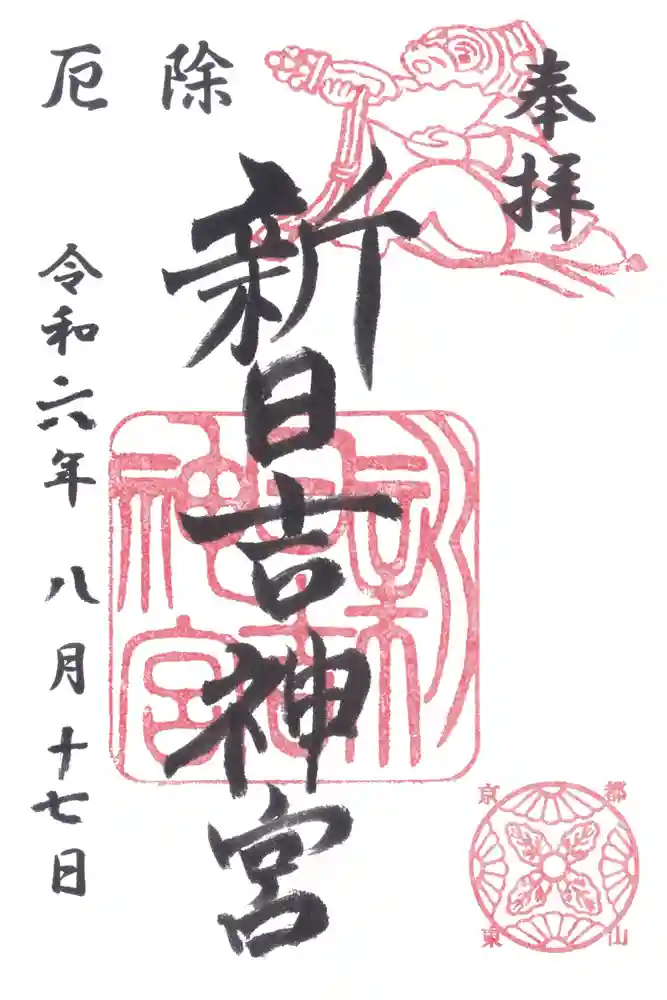 奉拝
厄除
新日吉神宮
令和六年 八月十七日
新日吉神宮
京都
東山